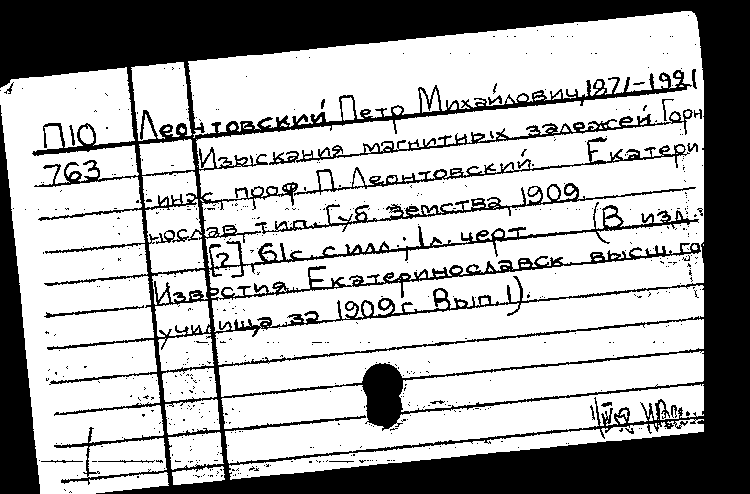 П10 Леонтовский, Петр Михайлович, 1871-1921
763 Изыскания магнитных залежей. Горн.
инж., проф. П. Леонтовский. Екатери-
нослав, тип. Губ. земства, 1909.
[2], 61 с. с илл.; 1 л. черт. (В изд.:
Известия Екатеринославск. высш. гор
училища за 1909 г. Вып. 1).